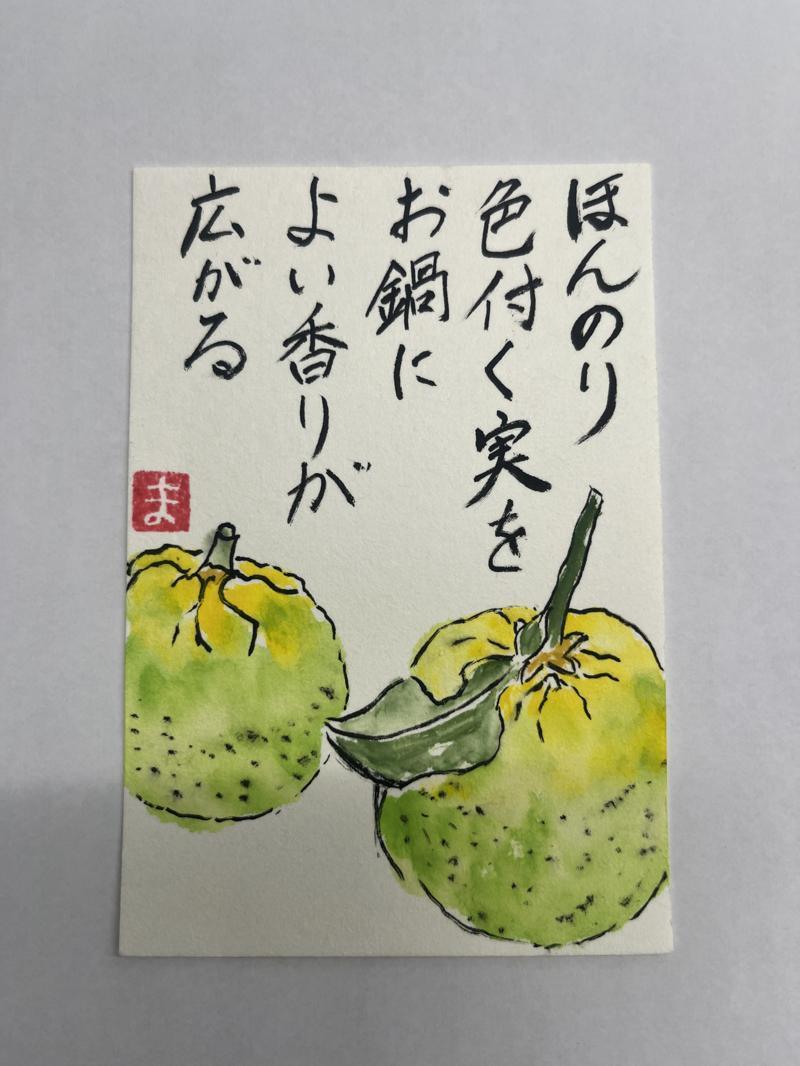 ほんのり
色付く実を
お鍋に
よい香りが
広がる
ま